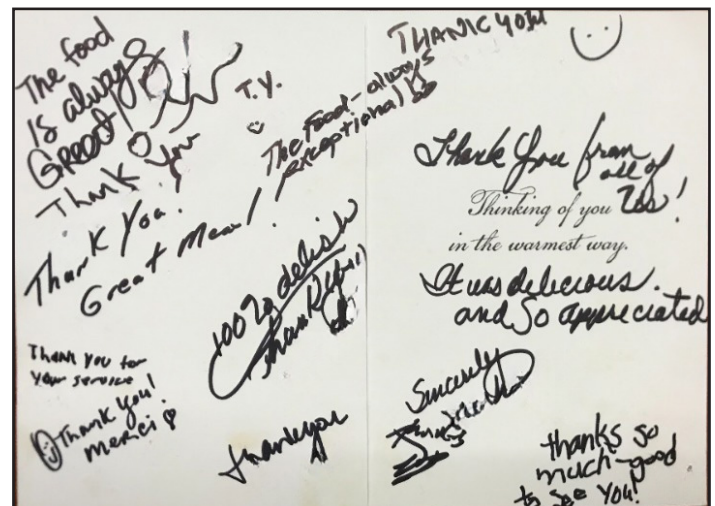 The food
is always
GREAT!
Thank You
T.Y.
Thank You!
Great Meal!
The Food-always
exceptional!!
100% delish
Thank you
Thank you for
your service
Thank you!
merici
thank you
THANK YOU
Thank You from
all of
us!
Thinking of you
in the warmest way.
It was delicious.
and So appreciated
Sincerely
thanks so
much-good
to see you!